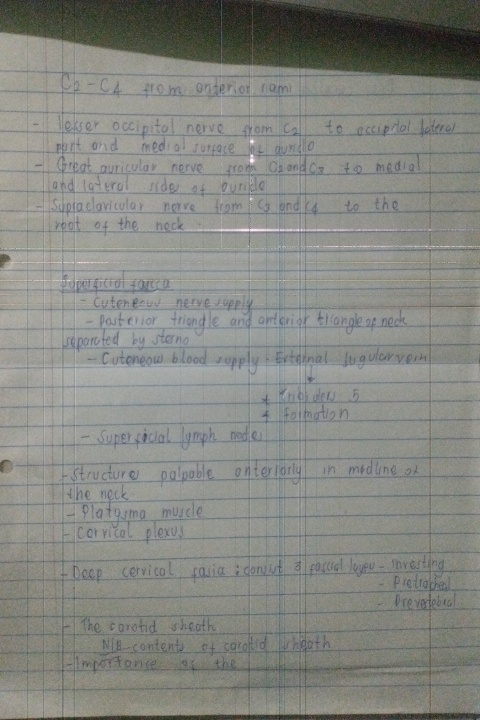 C2 - C4 from anterior rami
- lesser occipital nerve from C2 to occipital lateral
part and medial surface of auricle
- Great auricular nerve from C2 and C3 to medial
and lateral sides of auricle
- Supraclavicular nerve from C3 and C4 to the
root of the neck
Superficial fascia
- Cuteneous nerve supply
- Posterior triangle and anterior triangle of neck
separated by sterno
- Cuteneous blood supply - External Jugular vein
↓
* 5
* Formation
- Superficial lymph nodes
- Structures palpable anteriorly in midline of
the neck
- Platysma muscle
- Cervical plexus
- Deep cervical fasia : consist 3 fascial layer - Investing
- Pretracheal
- Prevertebral
- The carotid sheath
N/B contents of carotid sheath
- Importance of the